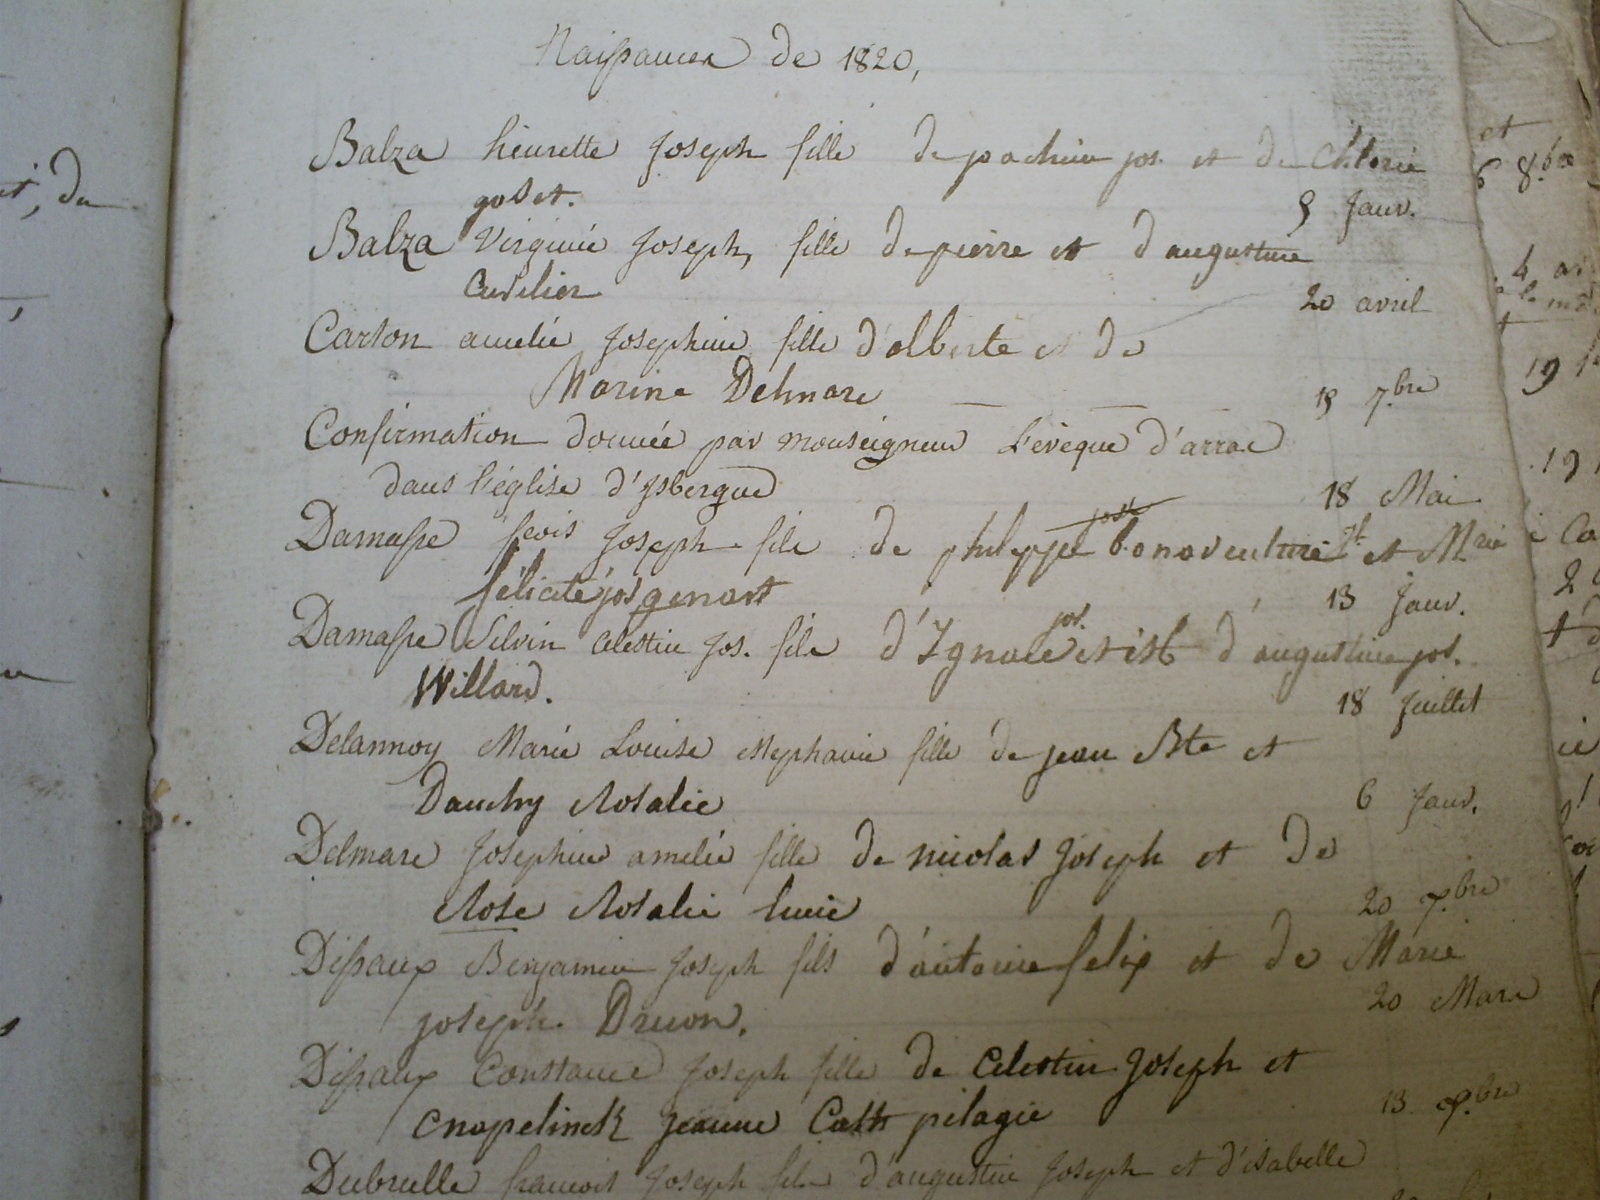 Naissances de 1820,
Balza henriette Joseph fille de joachim jos. et de
goset. 5 Janv.
Balza Virginie Joseph, fille de pierre et d'augustine
Cuvelier 20 avril
Carton amelie Josephine fille d'alberte et de
Marine Delmare 7.bre
Confirmation donnée par monseigneur L'evêque d'arras
dans l'église d'isbergue 18 Mai
Damasse Joseph fils de philippe bonaventure et Marie
félicité jos genart 13 Janv.
Damasse Silvin celestin Jos. fils d'Ignace jos. d'augustine jos.
Willard. 18 Juillet
Delannoy Marie Louise stephanie fille de jean Bte et
Dauchy Rosalie 6 Janv.
Delmare Josephine amelie fille de nicolas Joseph et De
Rose Rosalie lucie 20
Dissaux Benjamin Joseph fils d'antoine felix et de Marie
joseph. Druon. 20 Mars
Dissaux Constance Joseph fille de Celestin Joseph et
Cnapelinck jeanne Cath pelagie 13
Dubrulle francois Joseph fils d'augustin Joseph et d'isabelle